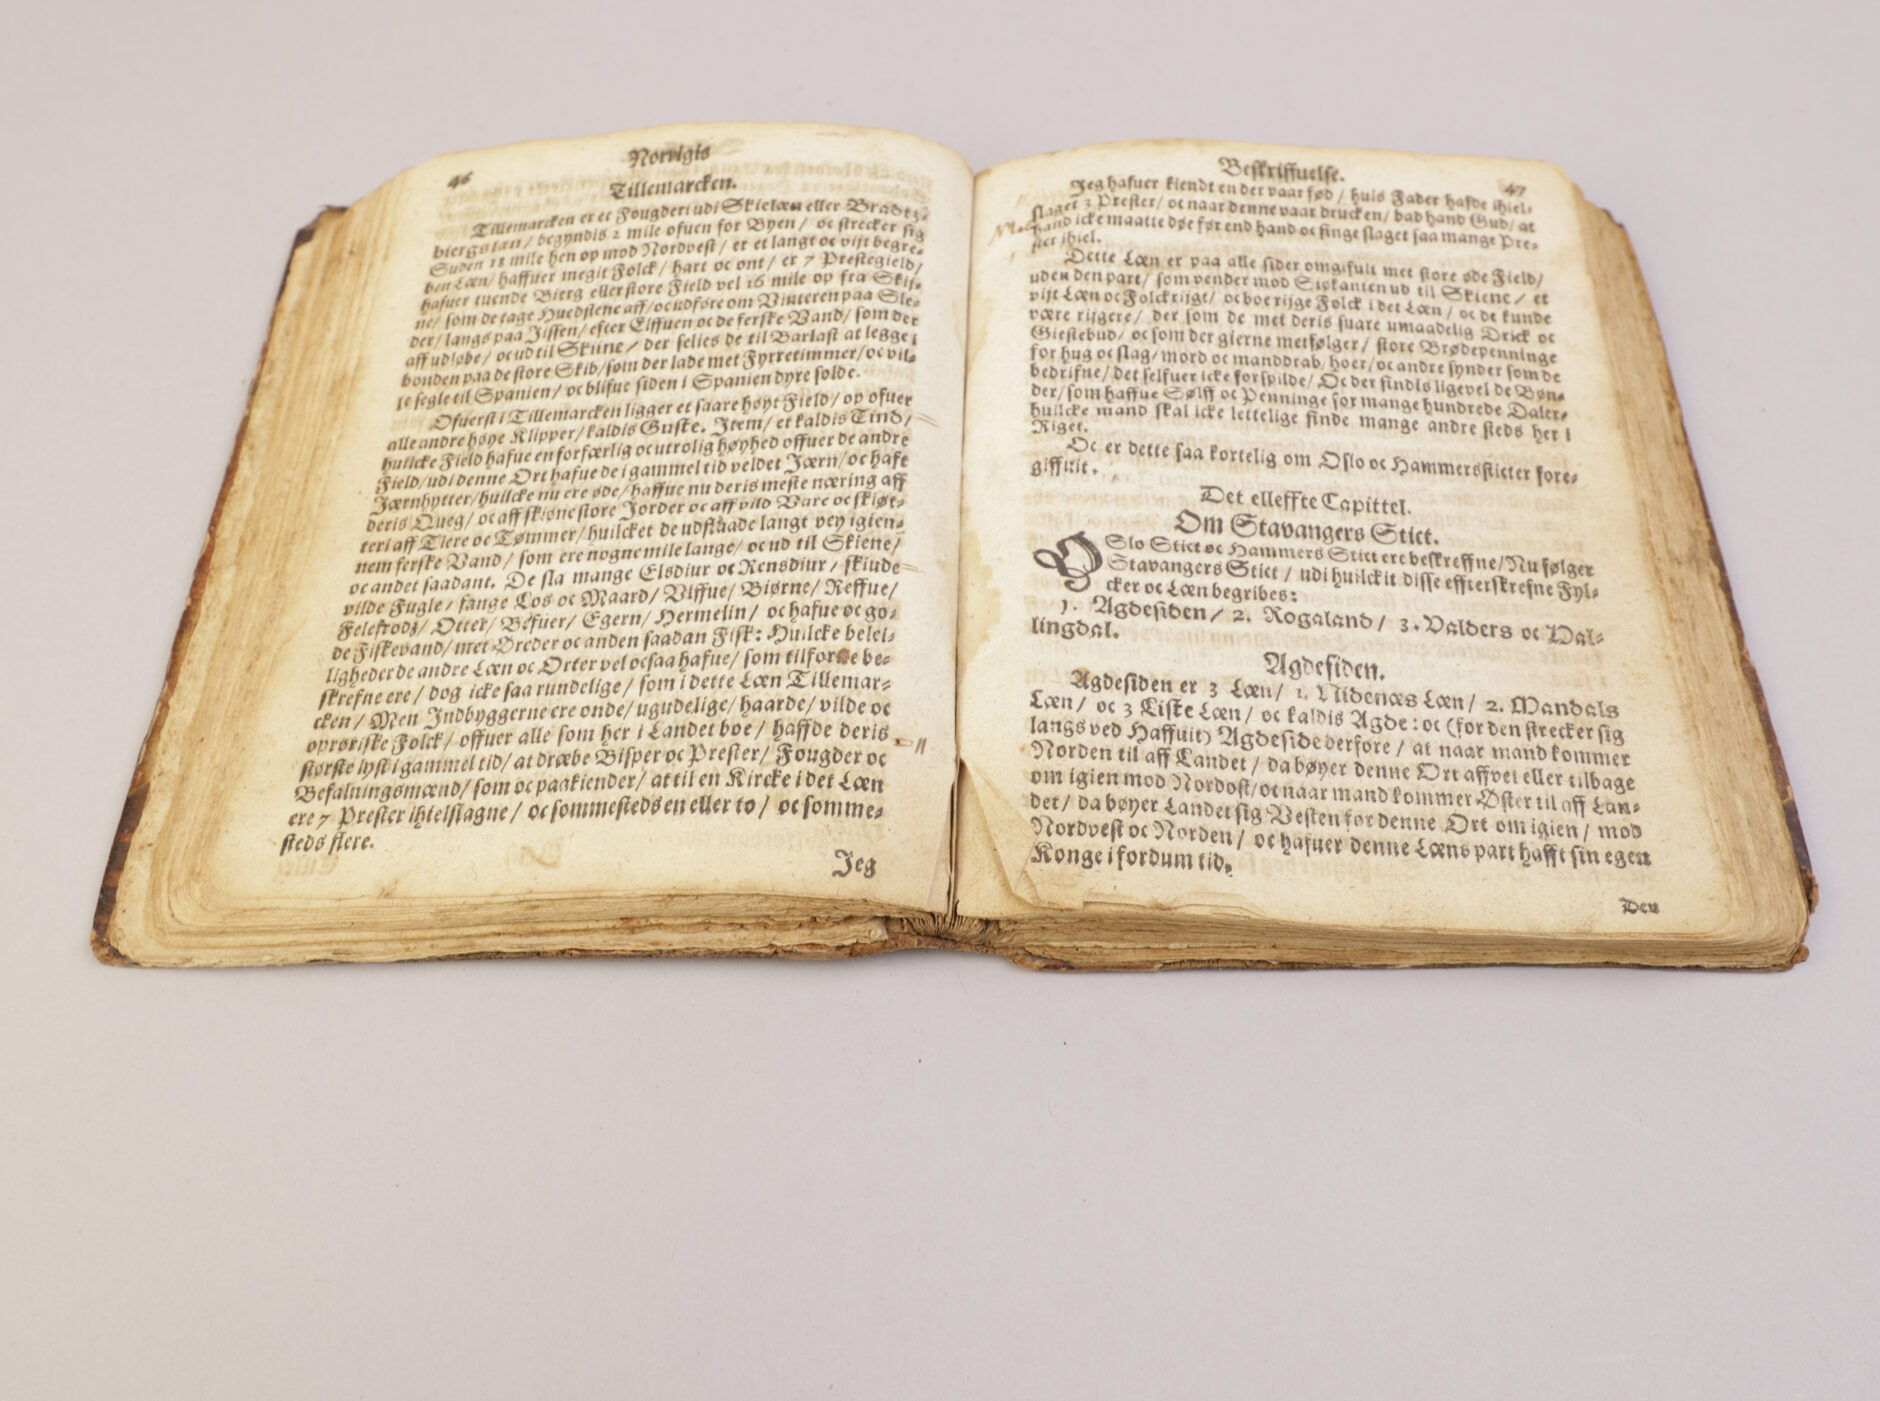 46
Norrigis
Tillemarcken.
Tillemarcken er et Fougderi udi Skielæn eller Bradtz-
biergs lan / begyndis 2 mile ofuen for Byen / oc strecker sig
Suden 18 mile hen op mod Nordvest / er et langt oc vijt begre-
ben Læn / haffuer megit Folck / hart oc ont / er 7 Prestegield /
hafuer tuende Bierg eller store Field vel 16 mile op fra Skij-
ne / som de tage Huedstene aff / oc udføre om Vinteren paa Sle-
der / langs paa Jissen / efter Elffuen oc de ferske Vand / som der
aff udløbe / oc ud til Skiine / der selies de til Barlast at legge i
bonden paa de store Skib / som der lade met Fyrretimmer / oc vil-
le segle til Spanien / oc blifue siden i Spanien dyre solde.
Ofuerst i Tillemarcken ligger et saare høyt Field / op ofuer
alle andre høye Klipper / kaldis Guste. Item / et kaldis Tind /
huilcke Field hafue en forfærlig oc utrolig høyhed offuer de andre
Field / udi denne Ort hafue de i gammel tid veldet Jærn / oc haft
Jærnhytter / huilcke nu ere øde / haffue nu deris meste næring aff
deris Queg / oc aff skiøne store Jorder oc aff vild Vare oc skiøt-
teri aff Tiere oc Tømmer / huilcket de udflaade langt vey igien-
nem ferske Vand / som ere nogne mile lange / oc ud til Skiene /
oc andet saadant. De sla mange Elsdiur oc Rensdiur / skiude
vilde Fugle / fange Los oc Maard / Ulffue / Biørne / Reffue /
Felefrodz / Otter / Befuer / Egern / Hermelin / oc hafue oc go-
de Fiskevand / met Øreder oc anden saadan Fisk: Huilcke belei-
ligheder de andre Læn oc Orter vel ocsaa hafue / som tilforne be-
skrefne ere / dog icke saa rundelige / som i dette Læn Tillemar-
cken / Men Indbyggerne ere onde / ugudelige / haarde / vilde oc
oprøriske Folck / offuer alle som her i Landet boe / haffde deris
største lyst i gammel tid / at dræbe Bisper oc Prester / Fougder oc
Befalningsmænd / som oc paakiender / at til en Kircke i det Læn
ere 7 Prester ihielslagne / oc sommesteds en eller to / oc somme-
steds flere.
Jeg
Beskriffuelse.
47
Jeg hafuer kiendt en der vaar fød / huis Fader hafde ihiel-
slaget 3 Prester / oc naar denne vaar drucken / bad hand Gud / at
hand icke maatte døe før end hand oc finge slaget saa mange Pre-
ster ihiel.
Dette Læn er paa alle sider omgifuit met store øde Field /
uden den part / som vender mod Siøkanten ud til Skiene / et
vijt Læn oc Folckrijgt / oc boe rijge Folck i det Læn / oc de kunde
være rijgere / der som de met deris suare umaadelig Drick oc
Giestebud / oc som der gierne metfølger / store Brødepenninge
for hug oc slag / mord oc manddrab / hoer / oc andre synder som de
bedrifne / det selfuer icke forspilde / Oc der findis ligevel de Bøn-
der / som haffue Sølff oc Penninge for mange hundrede Daler /
huilcke mand skal icke lettelige finde mange andre steds her i
Riget.
Oc er dette saa kortelig om Oslo oc Hammersstictter fore-
giffuit.
Det elleffte Capittel.
Om Stavangers Stict.
OSlo Stict oc Hammers Stict ere beskreffne / Nu følger
Stavangers Stict / udi huilckit disse effterskrefne Fyl-
cker oc Læn begribes:
1. Agdesiden / 2. Rogaland / 3. Valders oc Hal-
lingdal.
Agdesiden.
Agdesiden er 3 Læn / 1. Nidenæs Læn / 2. Mandals
Læn / oc 3 Liste Læn / oc kaldis Agde: oc (for den strecker sig
langs ved Haffuit) Agdeside derfore / at naar mand kommer
Norden til aff Landet / da bøyer denne Ort aff vel eller tilbage
om igien mod Nordost / oc naar mand kommer Øster til aff Lan-
det / da bøyer Landet sig Vesten for denne Ort om igien / mod
Nordvest oc Norden / oc hafuer denne Læns part hafft sin egen
Konge i fordum tid.
Den